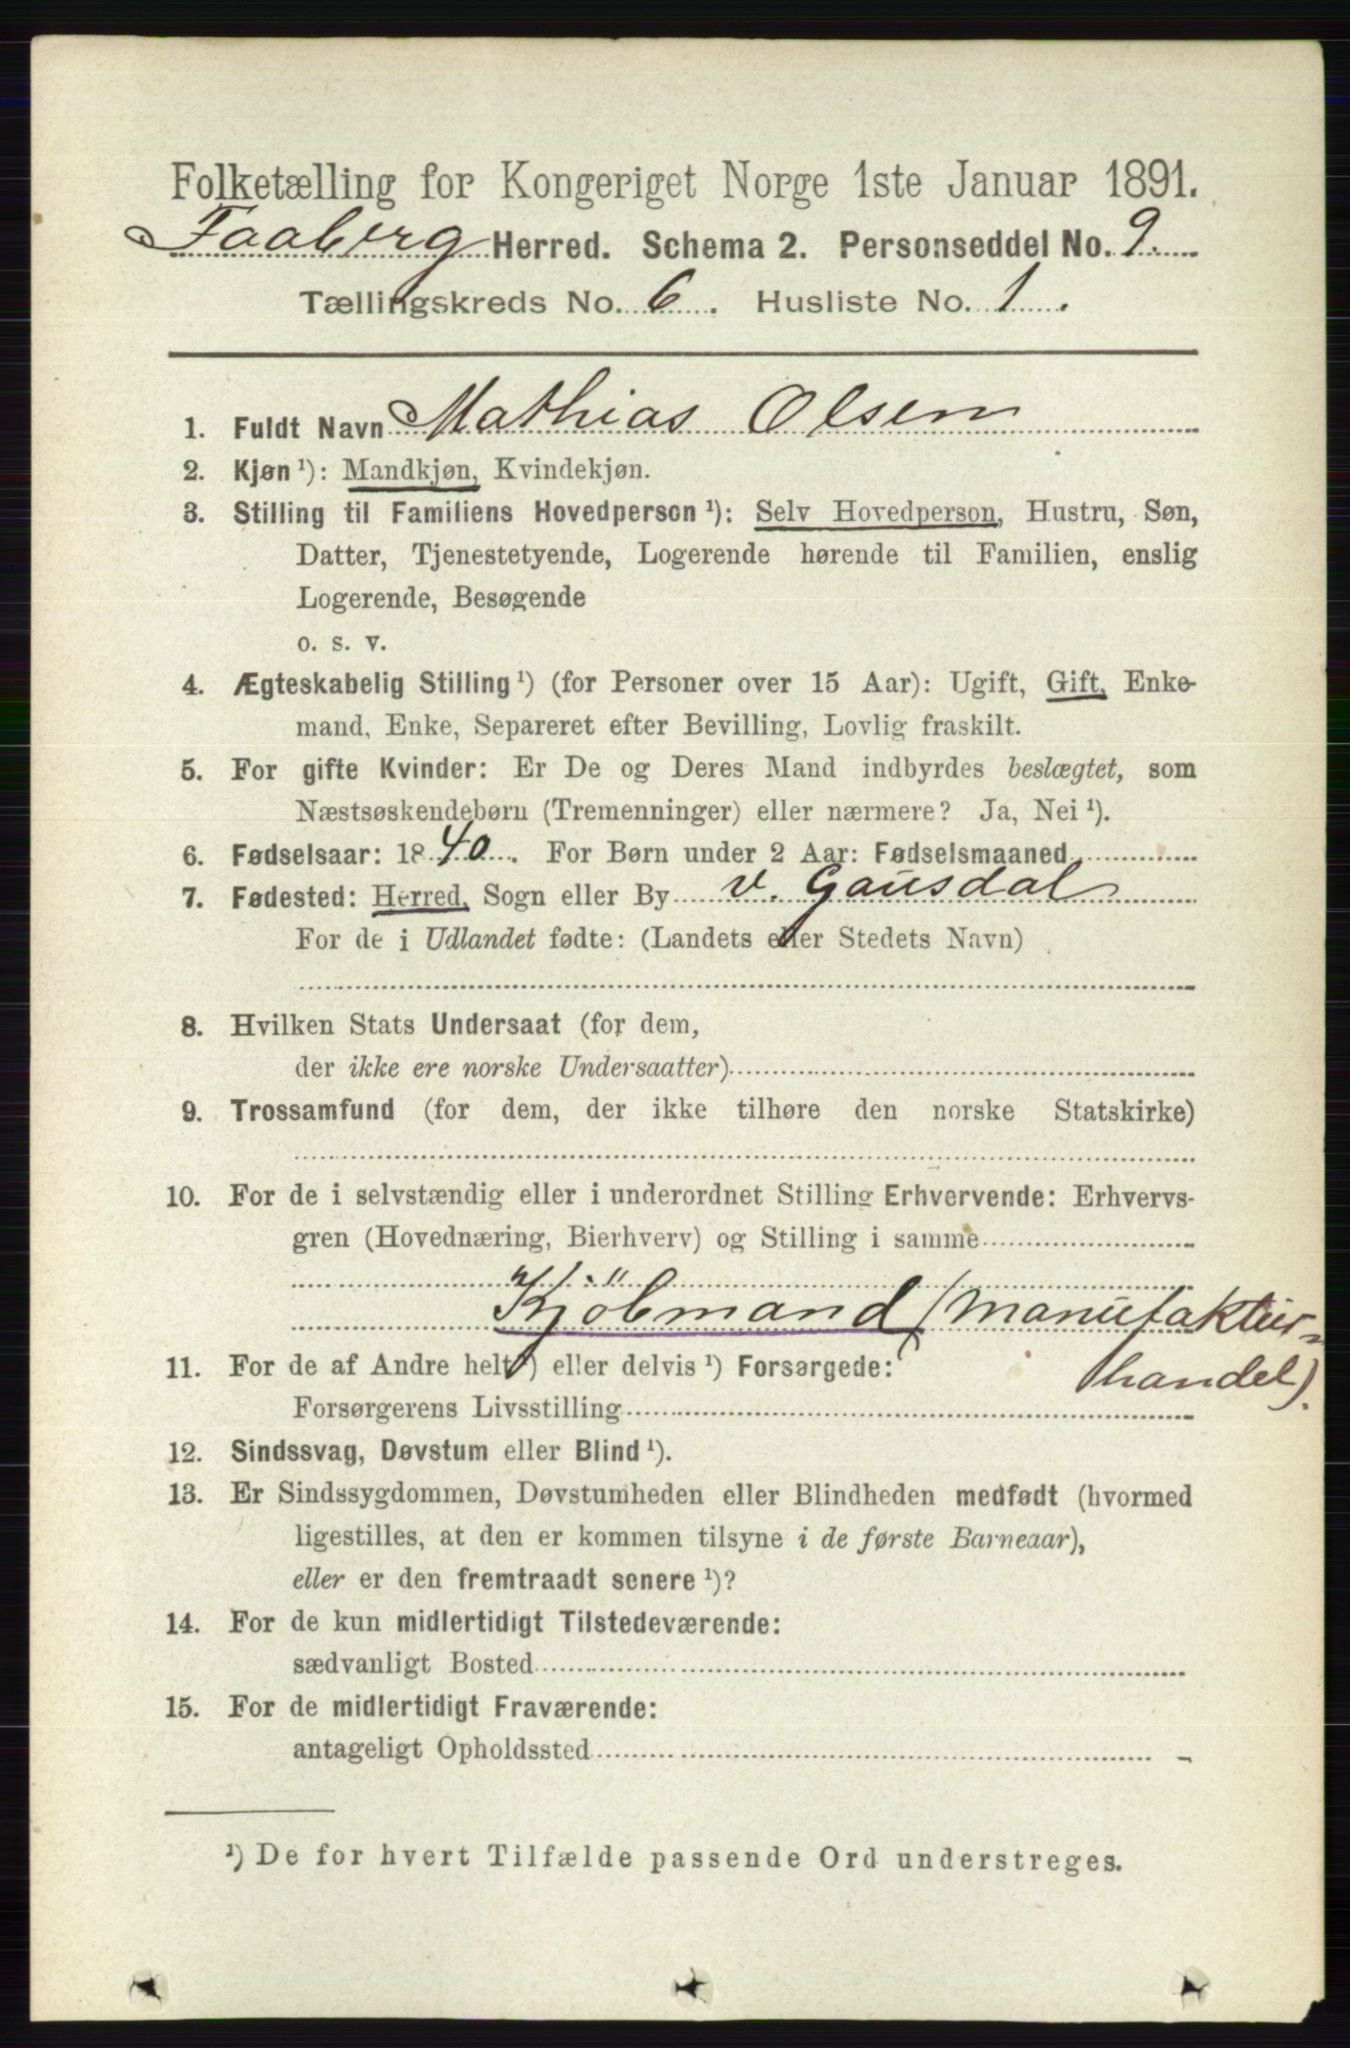 Folketælling for Kongeriget Norge 1ste Januar 1891.
Faaberg Herred. Schema 2. Personseddel No. 9.
Tællingskreds No. 6. Husliste No. 1.
1. Fuldt Navn Mathias Olsen
2. Kjøn ¹): Mandkjøn, Kvindekjøn.
3. Stilling til Familiens Hovedperson ¹): Selv Hovedperson, Hustru, Søn,
Datter, Tjenestetyende, Logerende hørende til Familien, enslig
Logerende, Besøgende
o. s. v.
4. Ægteskabelig Stilling ¹) (for Personer over 15 Aar): Ugift, Gift, Enke-
mand, Enke, Separeret efter Bevilling, Lovlig fraskilt.
5. For gifte Kvinder: Er De og Deres Mand indbyrdes beslægtet, som
Næstsøskendebørn (Tremenninger) eller nærmere? Ja, Nei ¹).
6. Fødselsaar: 1840. For Børn under 2 Aar: Fødselsmaaned
7. Fødested: Herred, Sogn eller By v. Gausdal
For de i Udlandet fødte: (Landets eller Stedets Navn)
8. Hvilken Stats Undersaat (for dem,
der ikke ere norske Undersaatter)
9. Trossamfund (for dem, der ikke tilhøre den norske Statskirke)
10. For de i selvstændig eller i underordnet Stilling Erhvervende: Erhvervs-
gren (Hovednæring, Bierhverv) og Stilling i samme
Kjöbmand (Manufaktur-
11. For de af Andre helt ¹) eller delvis ¹) Forsørgede: handel).
Forsørgerens Livsstilling
12. Sindssvag, Døvstum eller Blind ¹).
13. Er Sindssygdommen, Døvstumheden eller Blindheden medfødt (hvormed
ligestilles, at den er kommen tilsyne i de første Barneaar),
eller er den fremtraadt senere ¹)?
14. For de kun midlertidigt Tilstedeværende:
sædvanligt Bosted
15. For de midlertidigt Fraværende:
antageligt Opholdssted
¹) De for hvert Tilfælde passende Ord understreges.